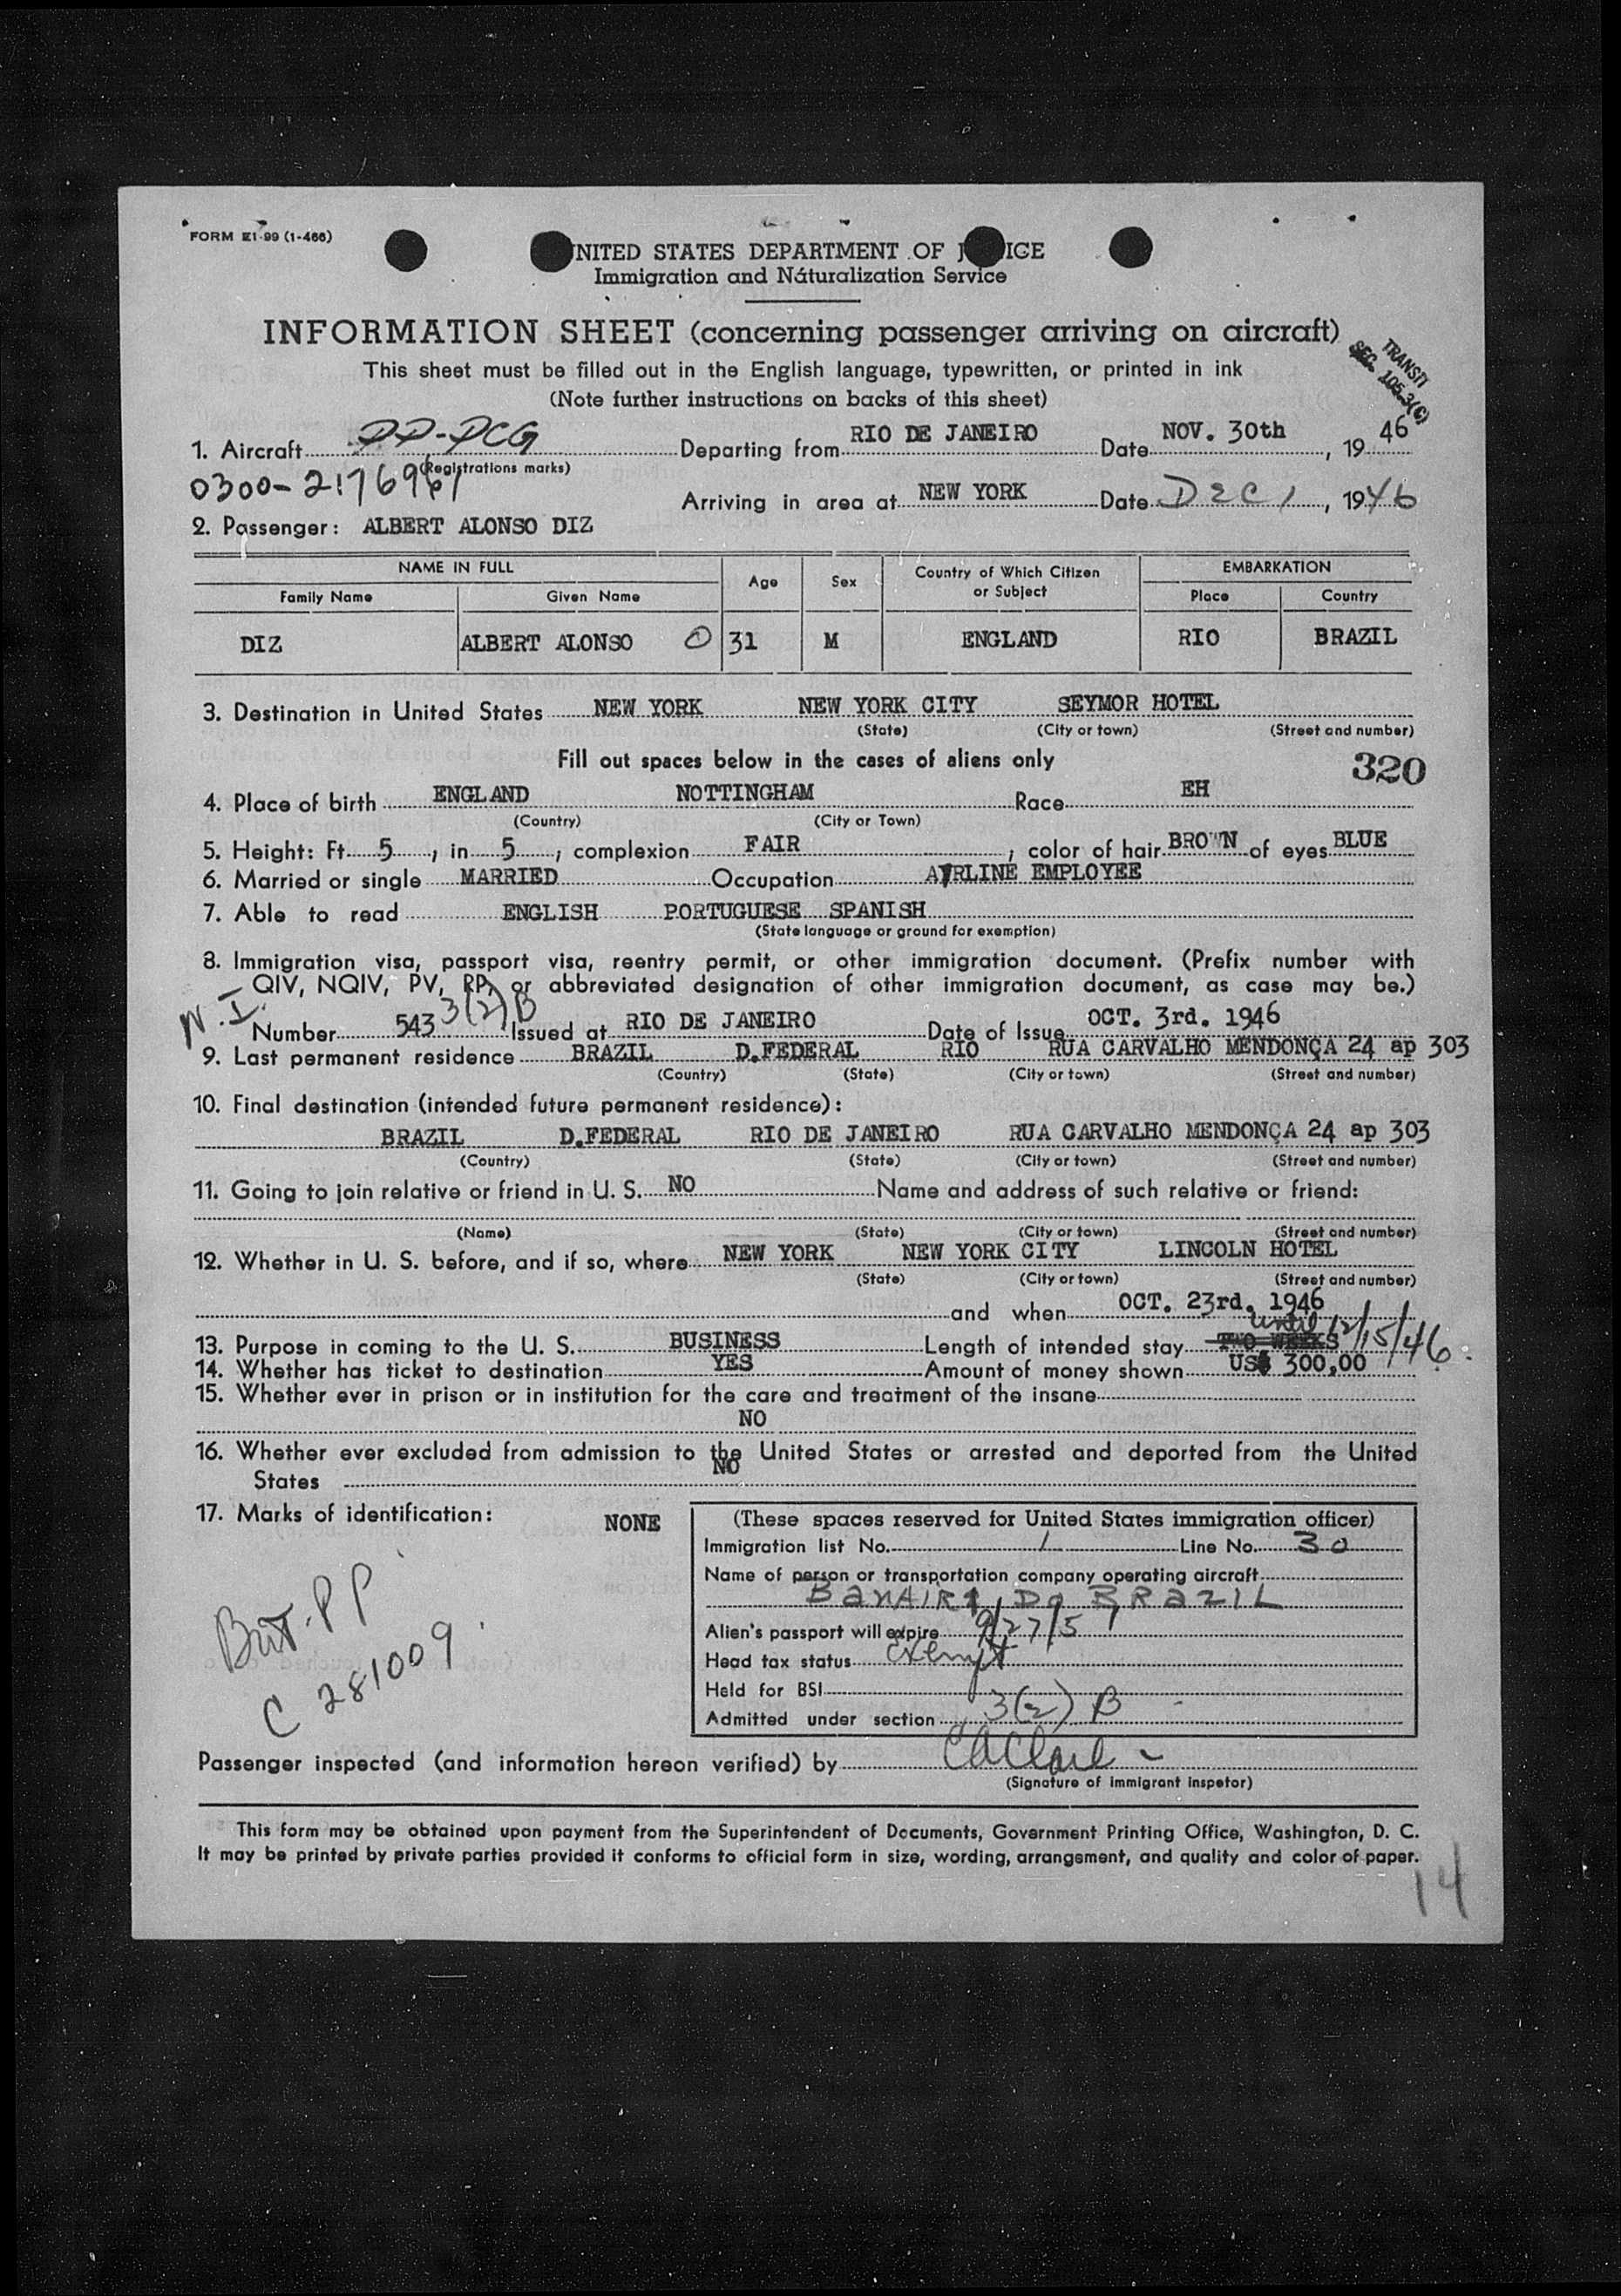 FORM EI-99 (1-466)
UNITED STATES DEPARTMENT OF J ICE
Immigration and Náturalization Service
INFORMATION SHEET (concerning passenger arriving on aircraft)
TRANSIT
SEC. 105.3(C)
This sheet must be filled out in the English language, typewritten, or printed in ink
(Note further instructions on backs of this sheet)
1. Aircraft PP-PCG Departing from RIO DE JANEIRO Date NOV. 30th, 19 46
(Registrations marks)
0300-
Arriving in area at NEW YORK Date DEC 1, 1946
2. Passenger: ALBERT ALONSO DIZ
NAME IN FULL Age Sex Country of Which Citizen or Subject EMBARKATION
Family Name Given Name Place Country
DIZ ALBERT ALONSO O 31 M ENGLAND RIO BRAZIL
3. Destination in United States NEW YORK NEW YORK CITY SEYMOR HOTEL
(State) (City or town) (Street and number)
Fill out spaces below in the cases of aliens only
320
4. Place of birth ENGLAND NOTTINGHAM Race EH
(Country) (City or Town)
5. Height: Ft. 5, in 5, complexion FAIR, color of hair BROWN of eyes BLUE
6. Married or single MARRIED Occupation AIRLINE EMPLOYEE
7. Able to read ENGLISH PORTUGUESE SPANISH
(State language or ground for exemption)
8. Immigration visa, passport visa, reentry permit, or other immigration document. (Prefix number with
QIV, NQIV, PV, RP, or abbreviated designation of other immigration document, as case may be.)
N.I. 3(2)B
Number 543 Issued at RIO DE JANEIRO Date of Issue OCT. 3rd. 1946
9. Last permanent residence BRAZIL D.FEDERAL RIO RUA CARVALHO MENDONÇA 24 ap 303
(Country) (State) (City or town) (Street and number)
10. Final destination (intended future permanent residence):
BRAZIL D.FEDERAL RIO DE JANEIRO RUA CARVALHO MENDONÇA 24 ap 303
(Country) (State) (City or town) (Street and number)
11. Going to join relative or friend in U. S. NO Name and address of such relative or friend:
(Name) (State) (City or town) (Street and number)
12. Whether in U. S. before, and if so, where NEW YORK NEW YORK CITY LINCOLN HOTEL
(State) (City or town) (Street and number)
and when OCT. 23rd. 1946
until 12/15/46.
13. Purpose in coming to the U. S. BUSINESS Length of intended stay TWO WEEKS
14. Whether has ticket to destination YES Amount of money shown US$ 300,00
15. Whether ever in prison or in institution for the care and treatment of the insane
NO
16. Whether ever excluded from admission to the United States or arrested and deported from the United
States NO
17. Marks of identification: NONE
Brit. PP
C 281009.
(These spaces reserved for United States immigration officer)
Immigration list No. 1 Line No. 30
Name of person or transportation company operating aircraft
Banair Do BRAZIL
Alien's passport will expire 9/27/51
Head tax status exempt
Held for BSI
Admitted under section 3(2) B
Passenger inspected (and information hereon verified) by
(Signature of immigrant inspetor)
This form may be obtained upon payment from the Superintendent of Documents, Government Printing Office, Washington, D. C.
It may be printed by private parties provided it conforms to official form in size, wording, arrangement, and quality and color of paper.
14